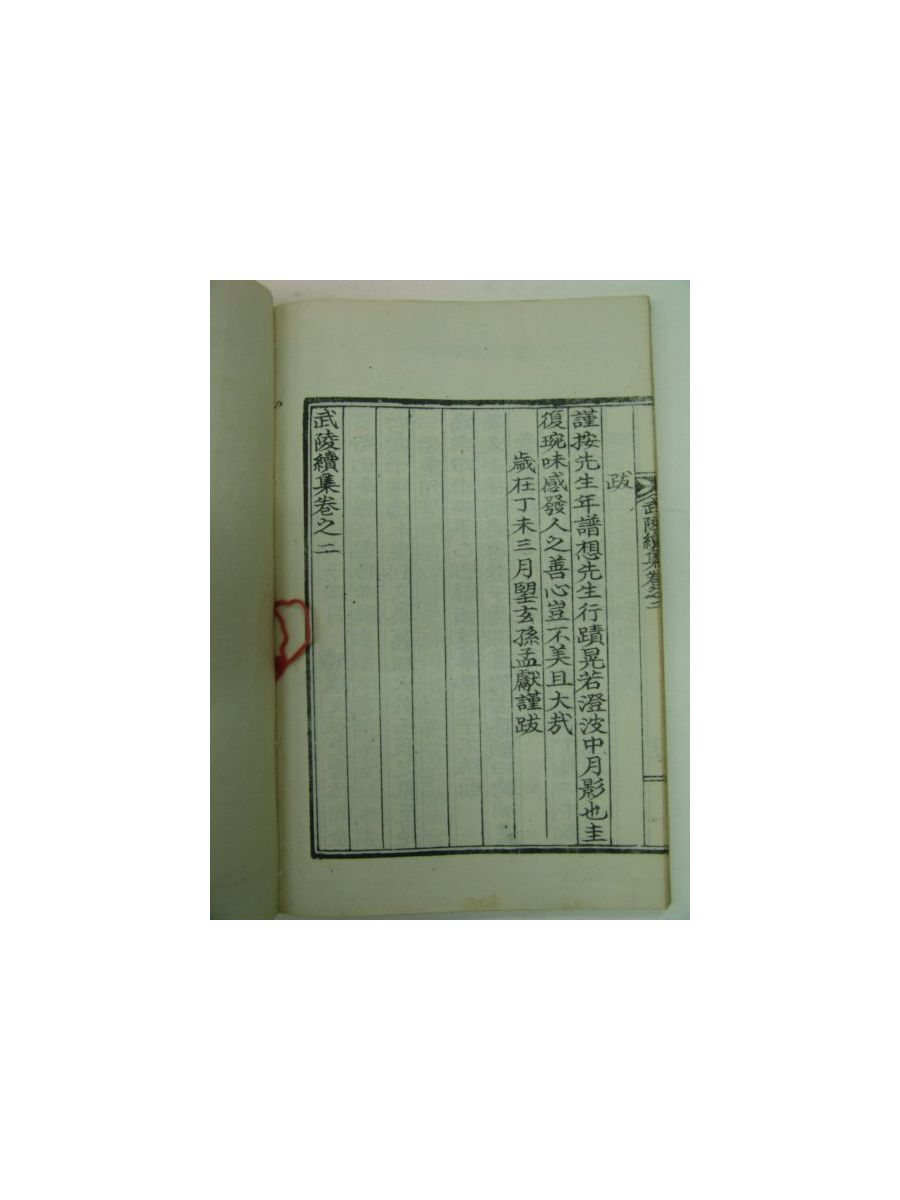 武陵續集卷之二
跋
謹按先生年譜想先生行蹟晃若澄波中月影也圭
復琬味感發人之善心豈不美且大㢤
歲在丁未三月朢玄孫孟獻謹跋
武陵續集卷之二